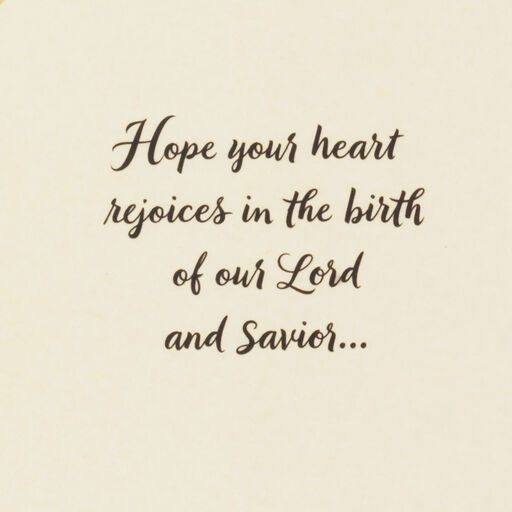 Hope your heart
rejoices in the birth
of our Lord
and Savior...